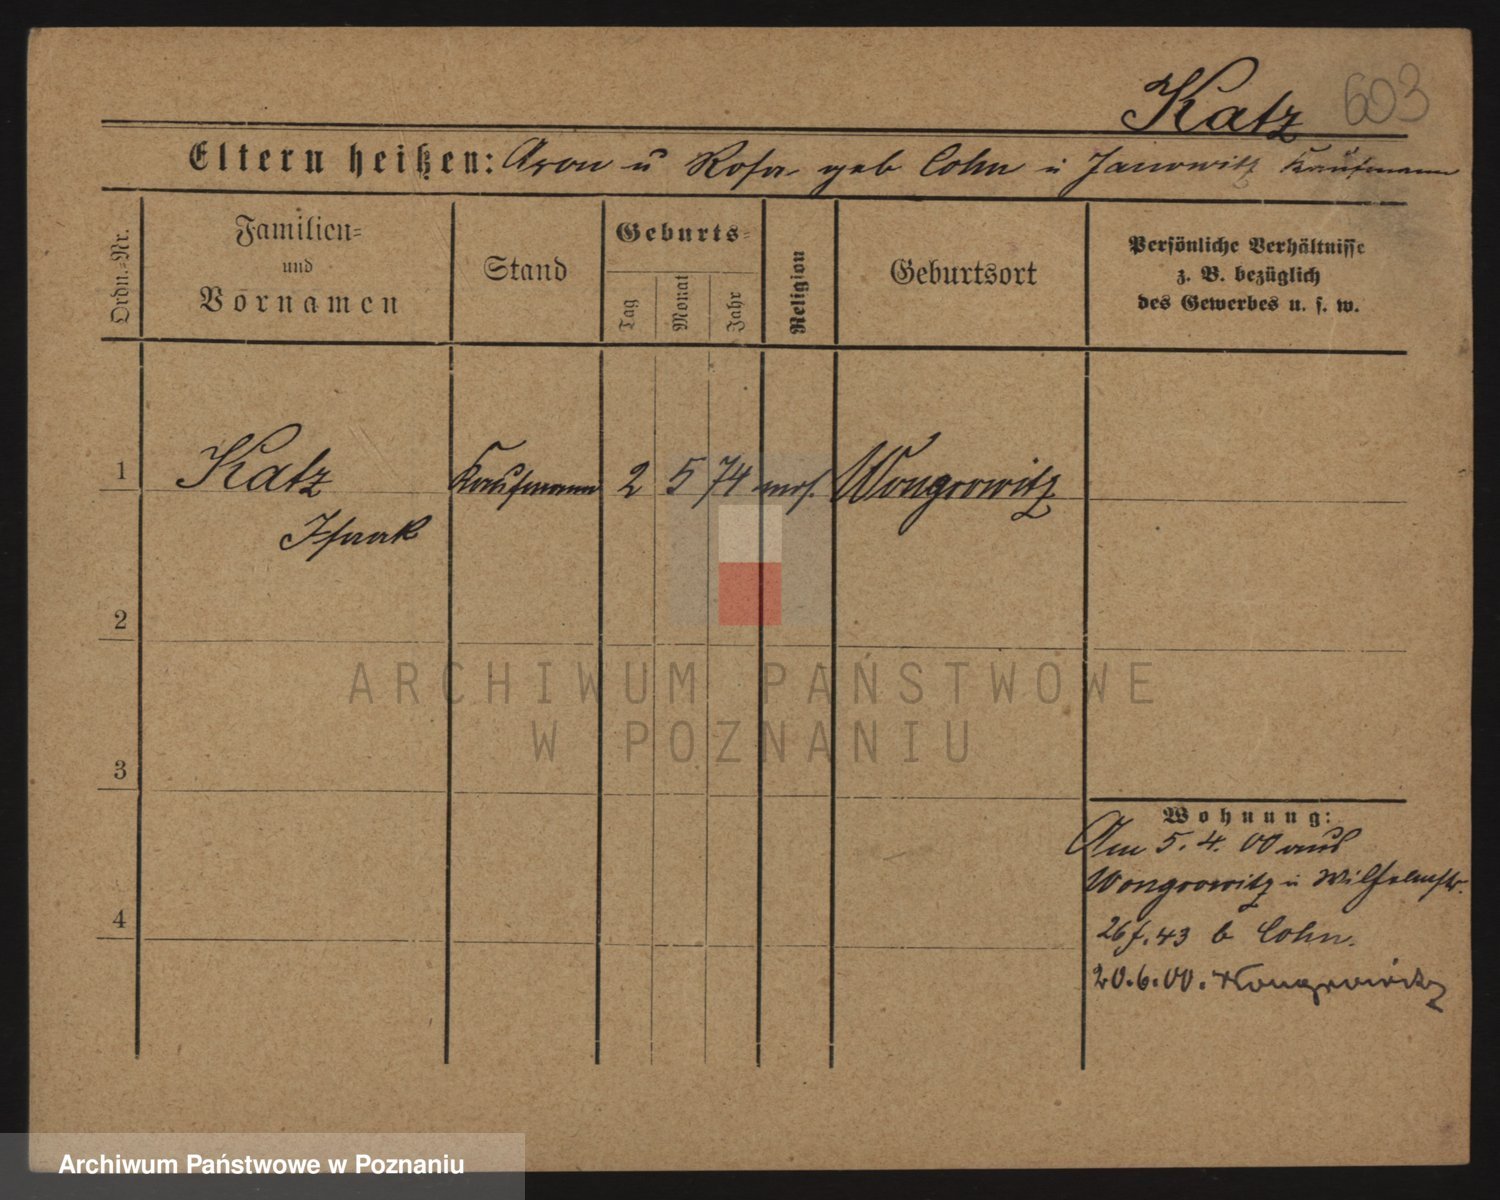 Katz 603
Eltern heißen: Aron u Rosa geb Cohn i Janowitz Kaufmann
Ordn.-Nr.
Familien-
und
Vornamen
Stand
Geburts-
Tag
Monat
Jahr
Religion
Geburtsort
Persönliche Verhältnisse
z. B. bezüglich
des Gewerbes u. s. w.
1 Katz Kaufmann 2 5 74 mos. Wongrowitz
Isaak
2
3
4
Wohnung:
Am 5. 4. 00 aus
Wongrowitz i Wilhelmstr.
26 f. 43 b Cohn.
20.6.00. Wongrowitz
ARCHIWUM PAŃSTWOWE
W POZNANIU
Archiwum Państwowe w Poznaniu